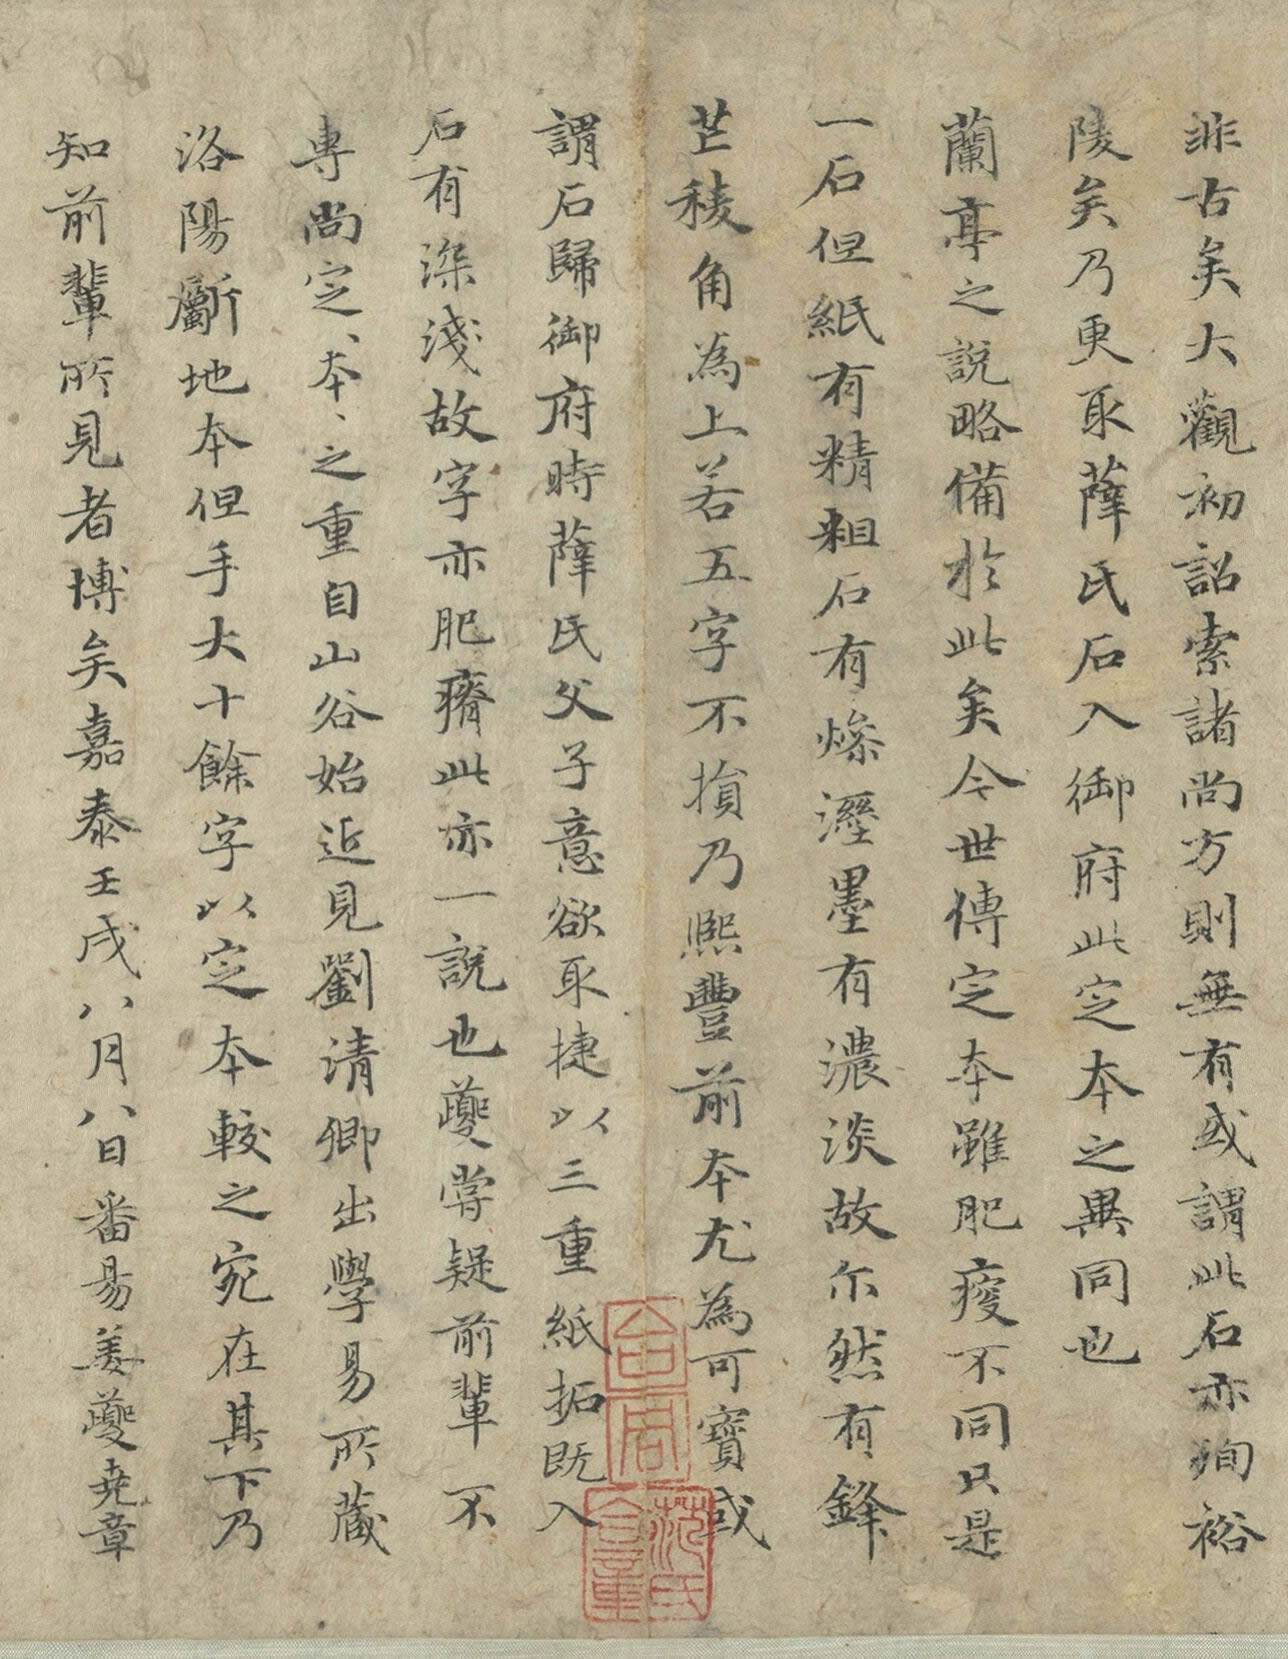 非古矣大觀初詔索諸尚方則無有或謂此石亦殉裕
陵矣乃更取薛氏石入御府此定本之異同也
蘭亭之說略備於此矣今世傳定本雖肥瘦不同只是
一石但紙有精粗石有燥溼墨有濃淡故尒然有鋒
芒稜角為上若五字不損乃熙豐前本尤為可寶或
謂石歸御府時薛氏父子意欲取捷以三重紙拓既入
石有深淺故字亦肥瘠此亦一說也夔嘗疑前輩不
專尚定、本、之重自山谷始近見劉清卿出學易所藏
洛陽斸地本但手大十餘字以定本較之宛在其下乃
知前輩所見者博矣嘉泰壬戌八月八日番昜姜夔堯章